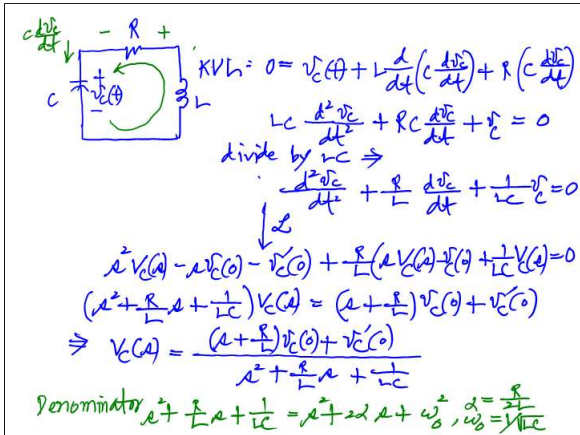 C dv_c/dt ↓ − R +
C + v_c(t) − L
KVL: 0 = v_c(t) + L d/dt (C dv_c/dt) + R (C dv_c/dt)
LC d²v_c/dt² + RC dv_c/dt + v_c = 0
divide by LC ⇒
d²v_c/dt² + R/L dv_c/dt + 1/LC v_c = 0
↓ ℒ
s² V_c(s) − s v_c(0) − v_c'(0) + R/L (s V_c(s) − v_c(0) + 1/LC V_c(s) = 0
(s² + R/L s + 1/LC) V_c(s) = (s + R/L) v_c(0) + v_c'(0)
⇒ V_c(s) = ((s + R/L) v_c(0) + v_c'(0)) / (s² + R/L s + 1/LC)
Denominator s² + R/L s + 1/LC = s² + 2α s + ω₀², α = R/2L
ω₀ = 1/√LC